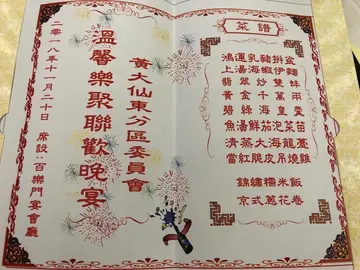 菜譜
鴻運乳豬拼盆
上湯海蝦伊麵
翡翠炒雙蚌
黃金千萬兩
碧綠海皇
魚湯鮮茄泡菜苗
清蒸大海龍躉
當紅脆皮吊燒雞
錦繡糯米飯
京式蔥花卷
黃大仙東分區委員會
溫馨樂聚聯歡晚宴
二零一八年十一月二十日 席設：百樂門宴會廳